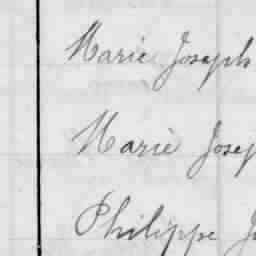 Marie Joseph
Marie Josep
Philippe J